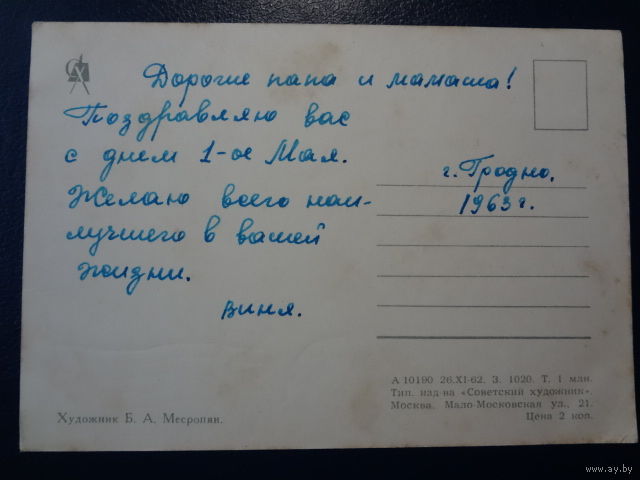 Дорогие папа и мамаша!
Поздравляю вас
с днем 1-ое Мая.
Желаю всего наи-
лучшего в вашей
жизни.
Виня.
г. Гродно.
1963 г.
А 10190 26.XI-62. З. 1020. Т. 1 млн.
Тип. изд-ва «Советский художник».
Москва, Мало-Московская ул., 21.
Цена 2 коп.
Художник Б. А. Месропян.
www.ay.by